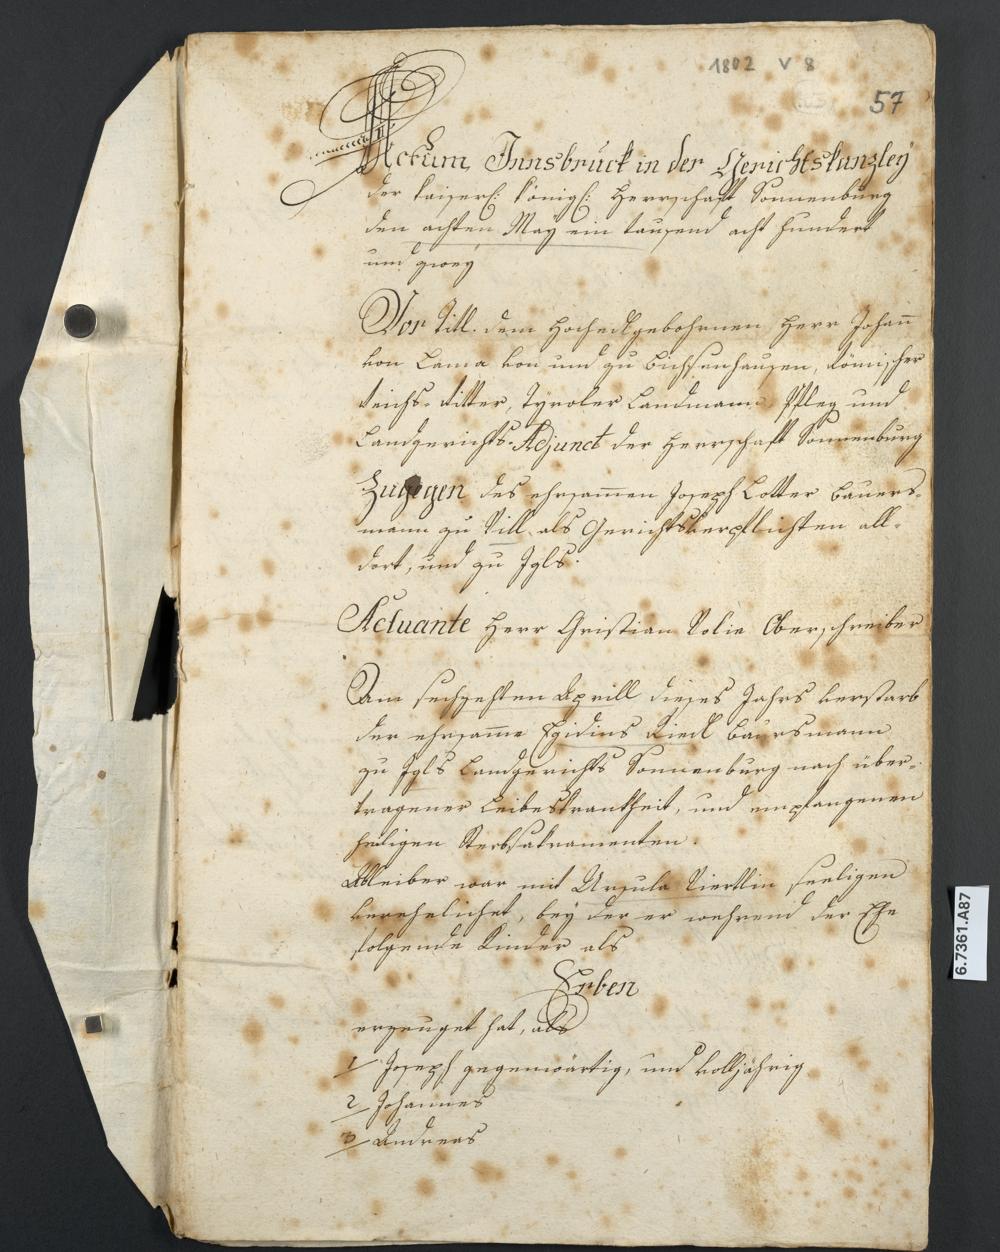 1802 V 8
57
Actum Innsbruck in der Gerichtskanzley
der kaiserl: königl: Herrschaft Sonnenburg
den achten May ein tausend acht hundert
und zwey
Vor Titl. dem Hochedlgebohrnen Herr Johann
von Lama von und zu Bichsenhausen, Römischer
Reichs-Ritter, Tyroler Landmann Pfleg und
Landgerichts-Adjunct der Herrschaft Sonnenburg
Zugegen des ehrsammen Joseph Lotter Bauers-
mann zu Vill als Gerichtsverpflichten all-
dort, und zu Igls.
Actuante Herr Christian Oberschreiber
Am sechzehten Aprill dieses Jahrs verstarb
der ehrsamme Egidius Riedl Baursmann
zu Igls Landgerichts Sonnenburg nach über-
tragener Leibeskrankheit, und empfangenen
heiligen Sterbsakramenten.
Ableiber war mit Ursula seeligen
verehelichet, bey der er wehrend der Ehe
folgende Kinder als
Erben
erzeuget hat, als
1/ Joseph gegenwärtig, und volljährig
2/ Johannes
3/ Andreas
6.7361.A87